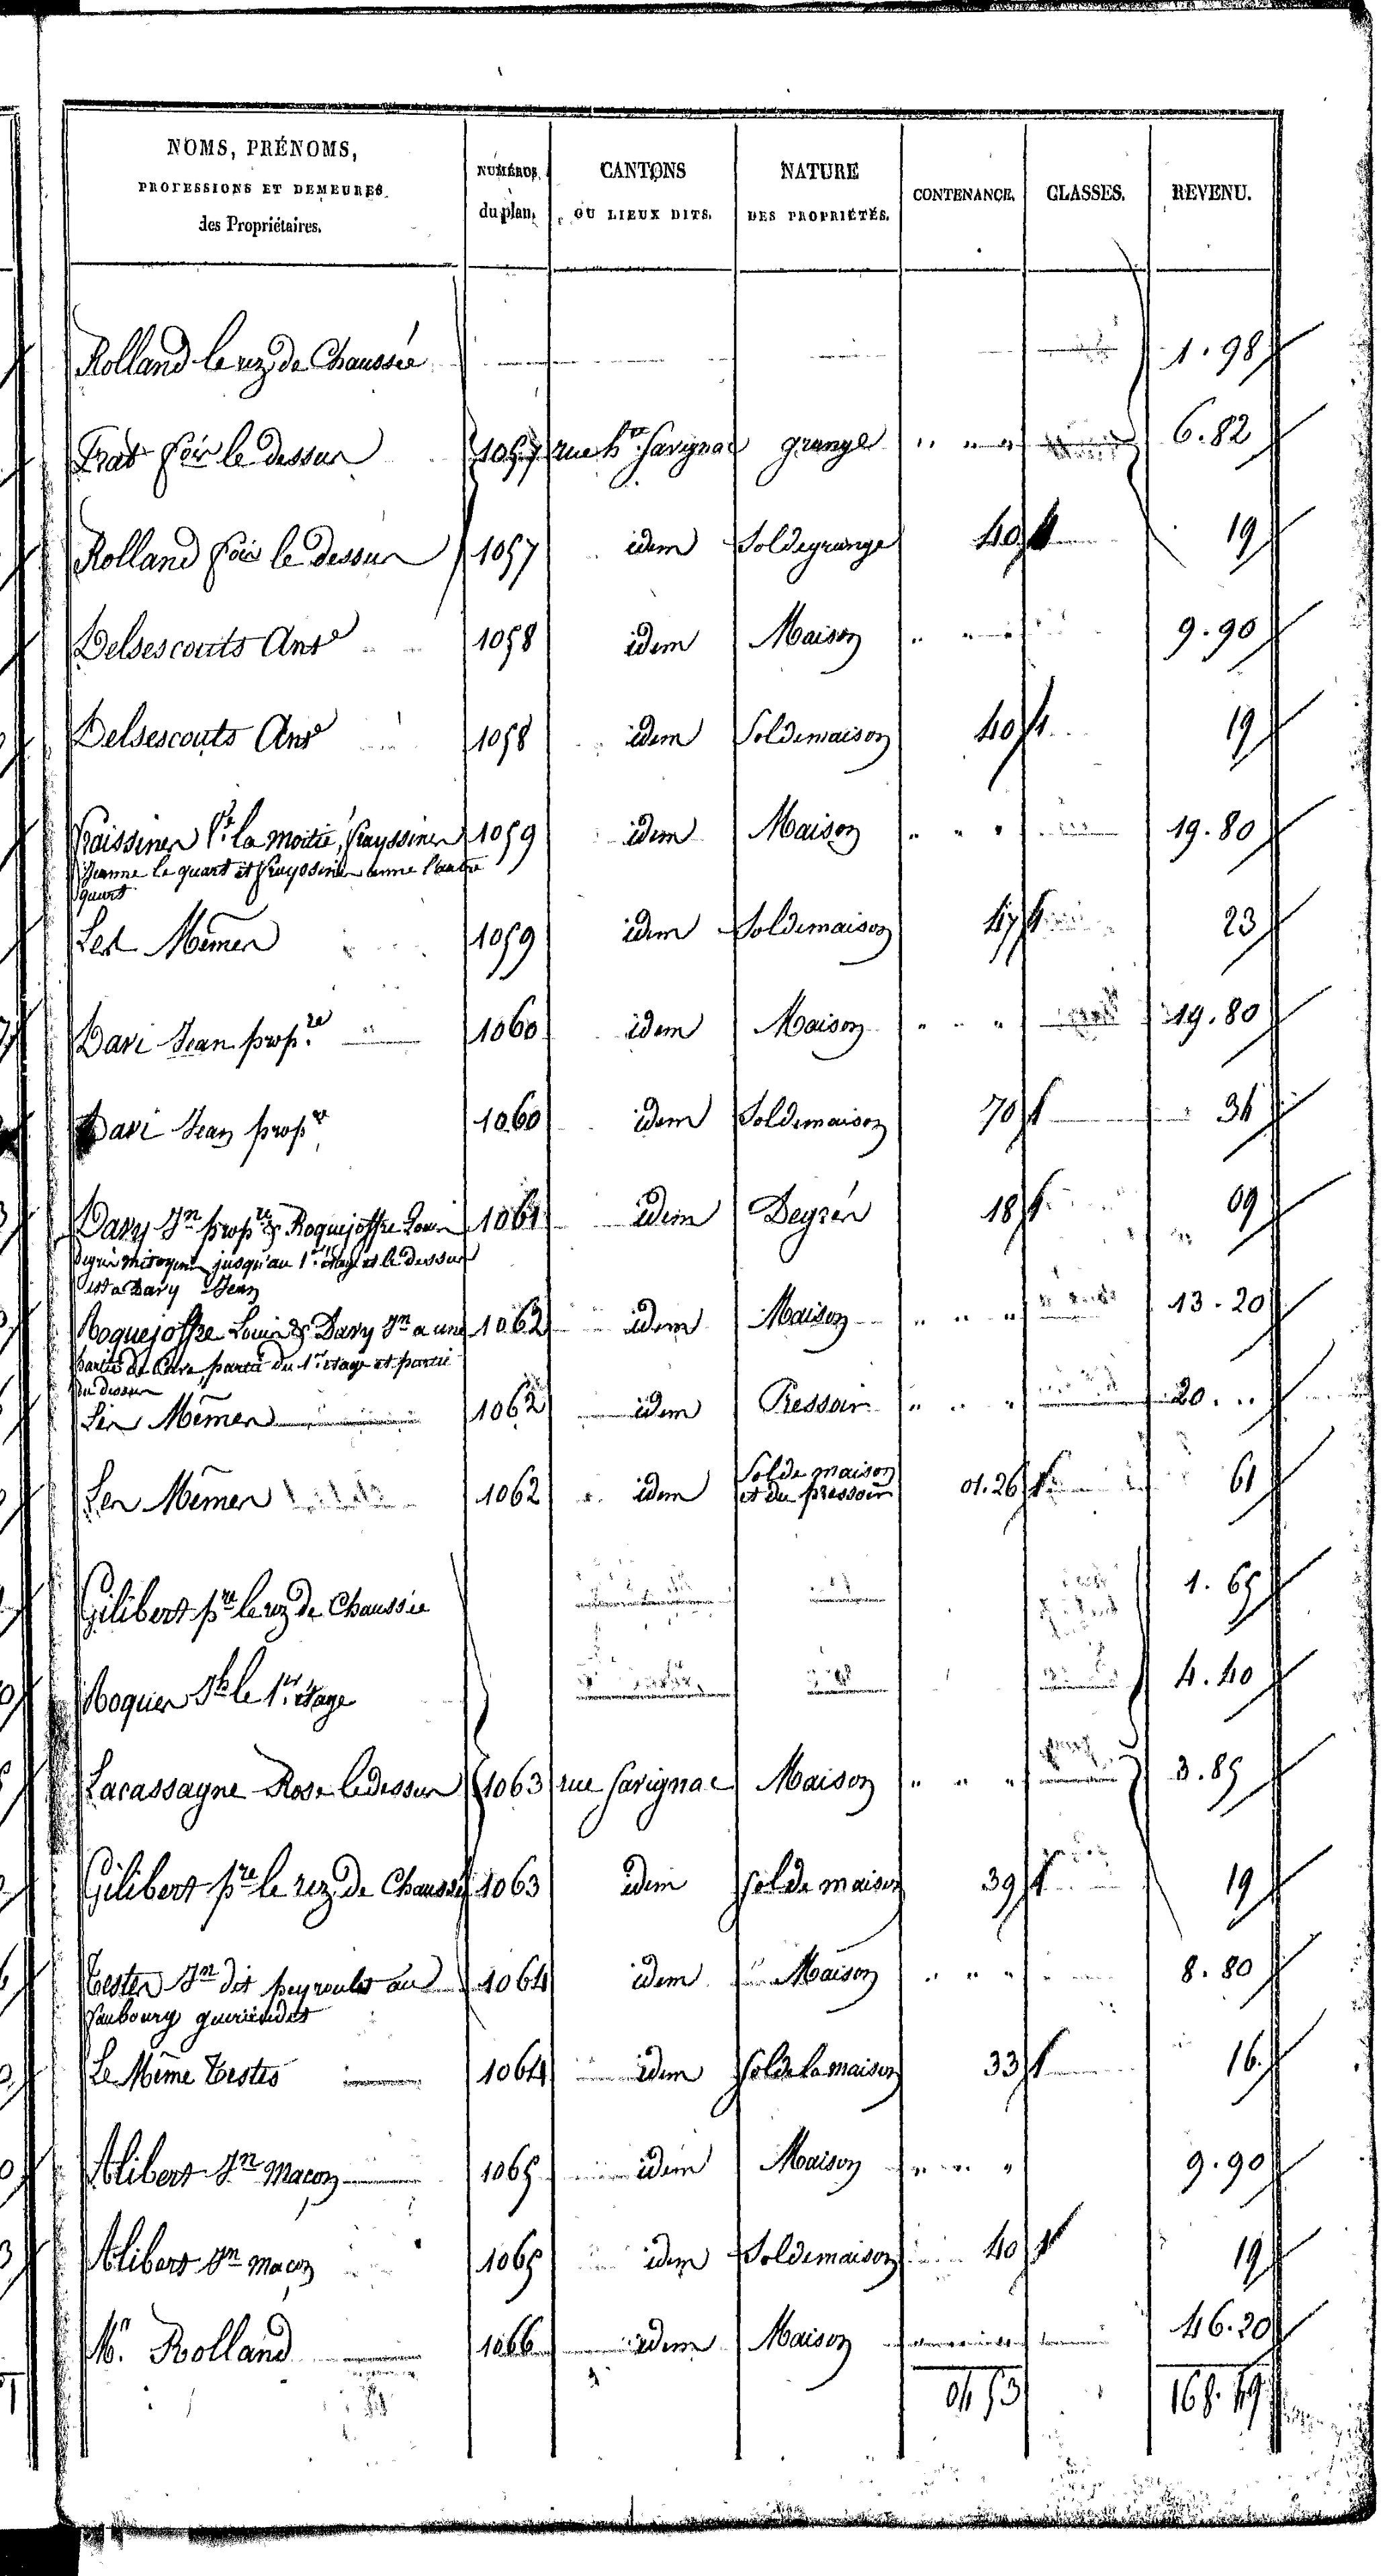 NOMS, PRÉNOMS, PROFESSIONS ET DEMEURES des Propriétaires. NUMÉROS du plan. CANTONS OU LIEUX DITS. NATURE DES PROPRIÉTÉS. CONTENANCE. CLASSES. REVENU.
Rolland le rez de Chaussée 1.98
Prat le dessus 1057 rue hte Savignac grange " " " 6.82
Rolland le dessus 1057 idem Sol de grange 40 1 19
Delsescouts Ane 1058 idem Maison " " " 9.90
Delsescouts Ane 1058 idem Sol de maison 40 1 19
Fraissines Pre la moitié, Frayssines 1059 idem Maison " " " 19.80
Jeanne le quart et Frayssines anne l'autre
quart
Les Mêmes 1059 idem Sol de maison 47 1 23
Davi Jean propre 1060 idem Maison " " " 19.80
Davi Jean propre 1060 idem Sol de maison 70 1 34
Davy Jn propre & Roquejoffre Louis 1061 idem Degrés 18 1 09
degrés mitoyens jusqu'au 1er étage et le dessus
est a Davy Jean
Roquejoffre Louis & Davy Jn a une 1062 idem Maison " " " 13.20
partie de Cave, partie du 1er étage et partie
du dessus
Les Mêmes 1062 idem Pressoir " " " 20. "
Les Mêmes 1062 idem Sol de maison et du pressoir 01.26 1 61
Gilibert pre le rez de Chaussée 1.65
Roques Jh le 1er étage 4.40
Lacassagne Rose le dessus 1063 rue Savignac Maison " " " 3.85
Gilibert pre le rez de Chaussée 1063 idem Sol de maison 39 1 19
Testes Jn dit peyroulet au 1064 idem Maison " " " 8.80
faubourg
Le Même Testes 1064 idem Sol de la maison 33 1 16
Alibert Jn Macon 1065 idem Maison " " " 9.90
Alibert Jn macon 1065 idem Sol de maison 40 1 19
Mr. Rolland 1066 idem Maison 46.20
04 53 168.49